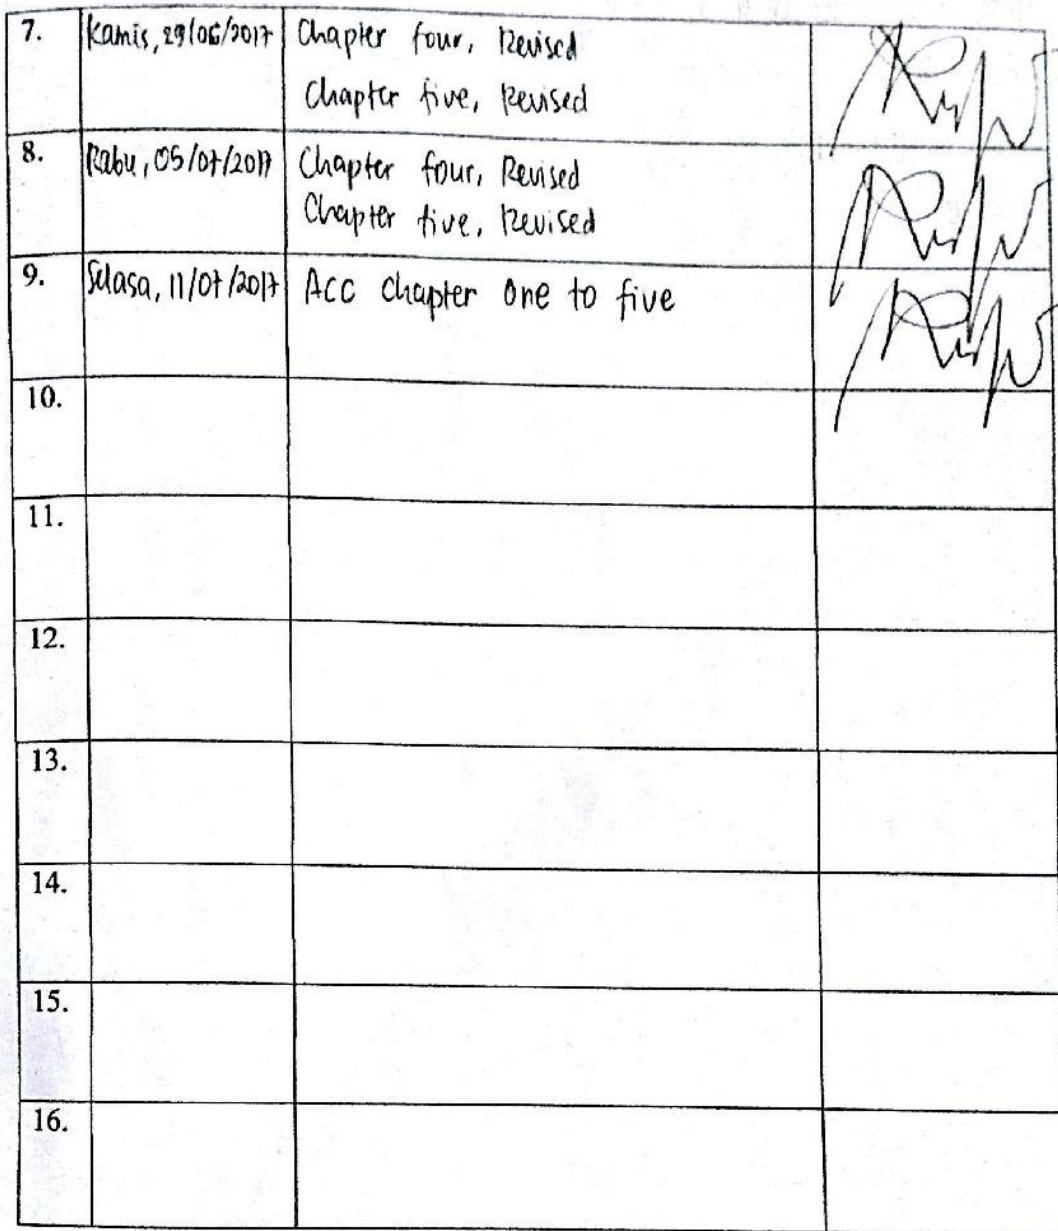 7. Kamis, 29/06/2017 Chapter four, Revised
Chapter five, Revised
8. Rabu, 05/07/2017 Chapter four, Revised
Chapter five, Revised
9. Selasa, 11/07/2017 ACC chapter one to five
10.
11.
12.
13.
14.
15.
16.